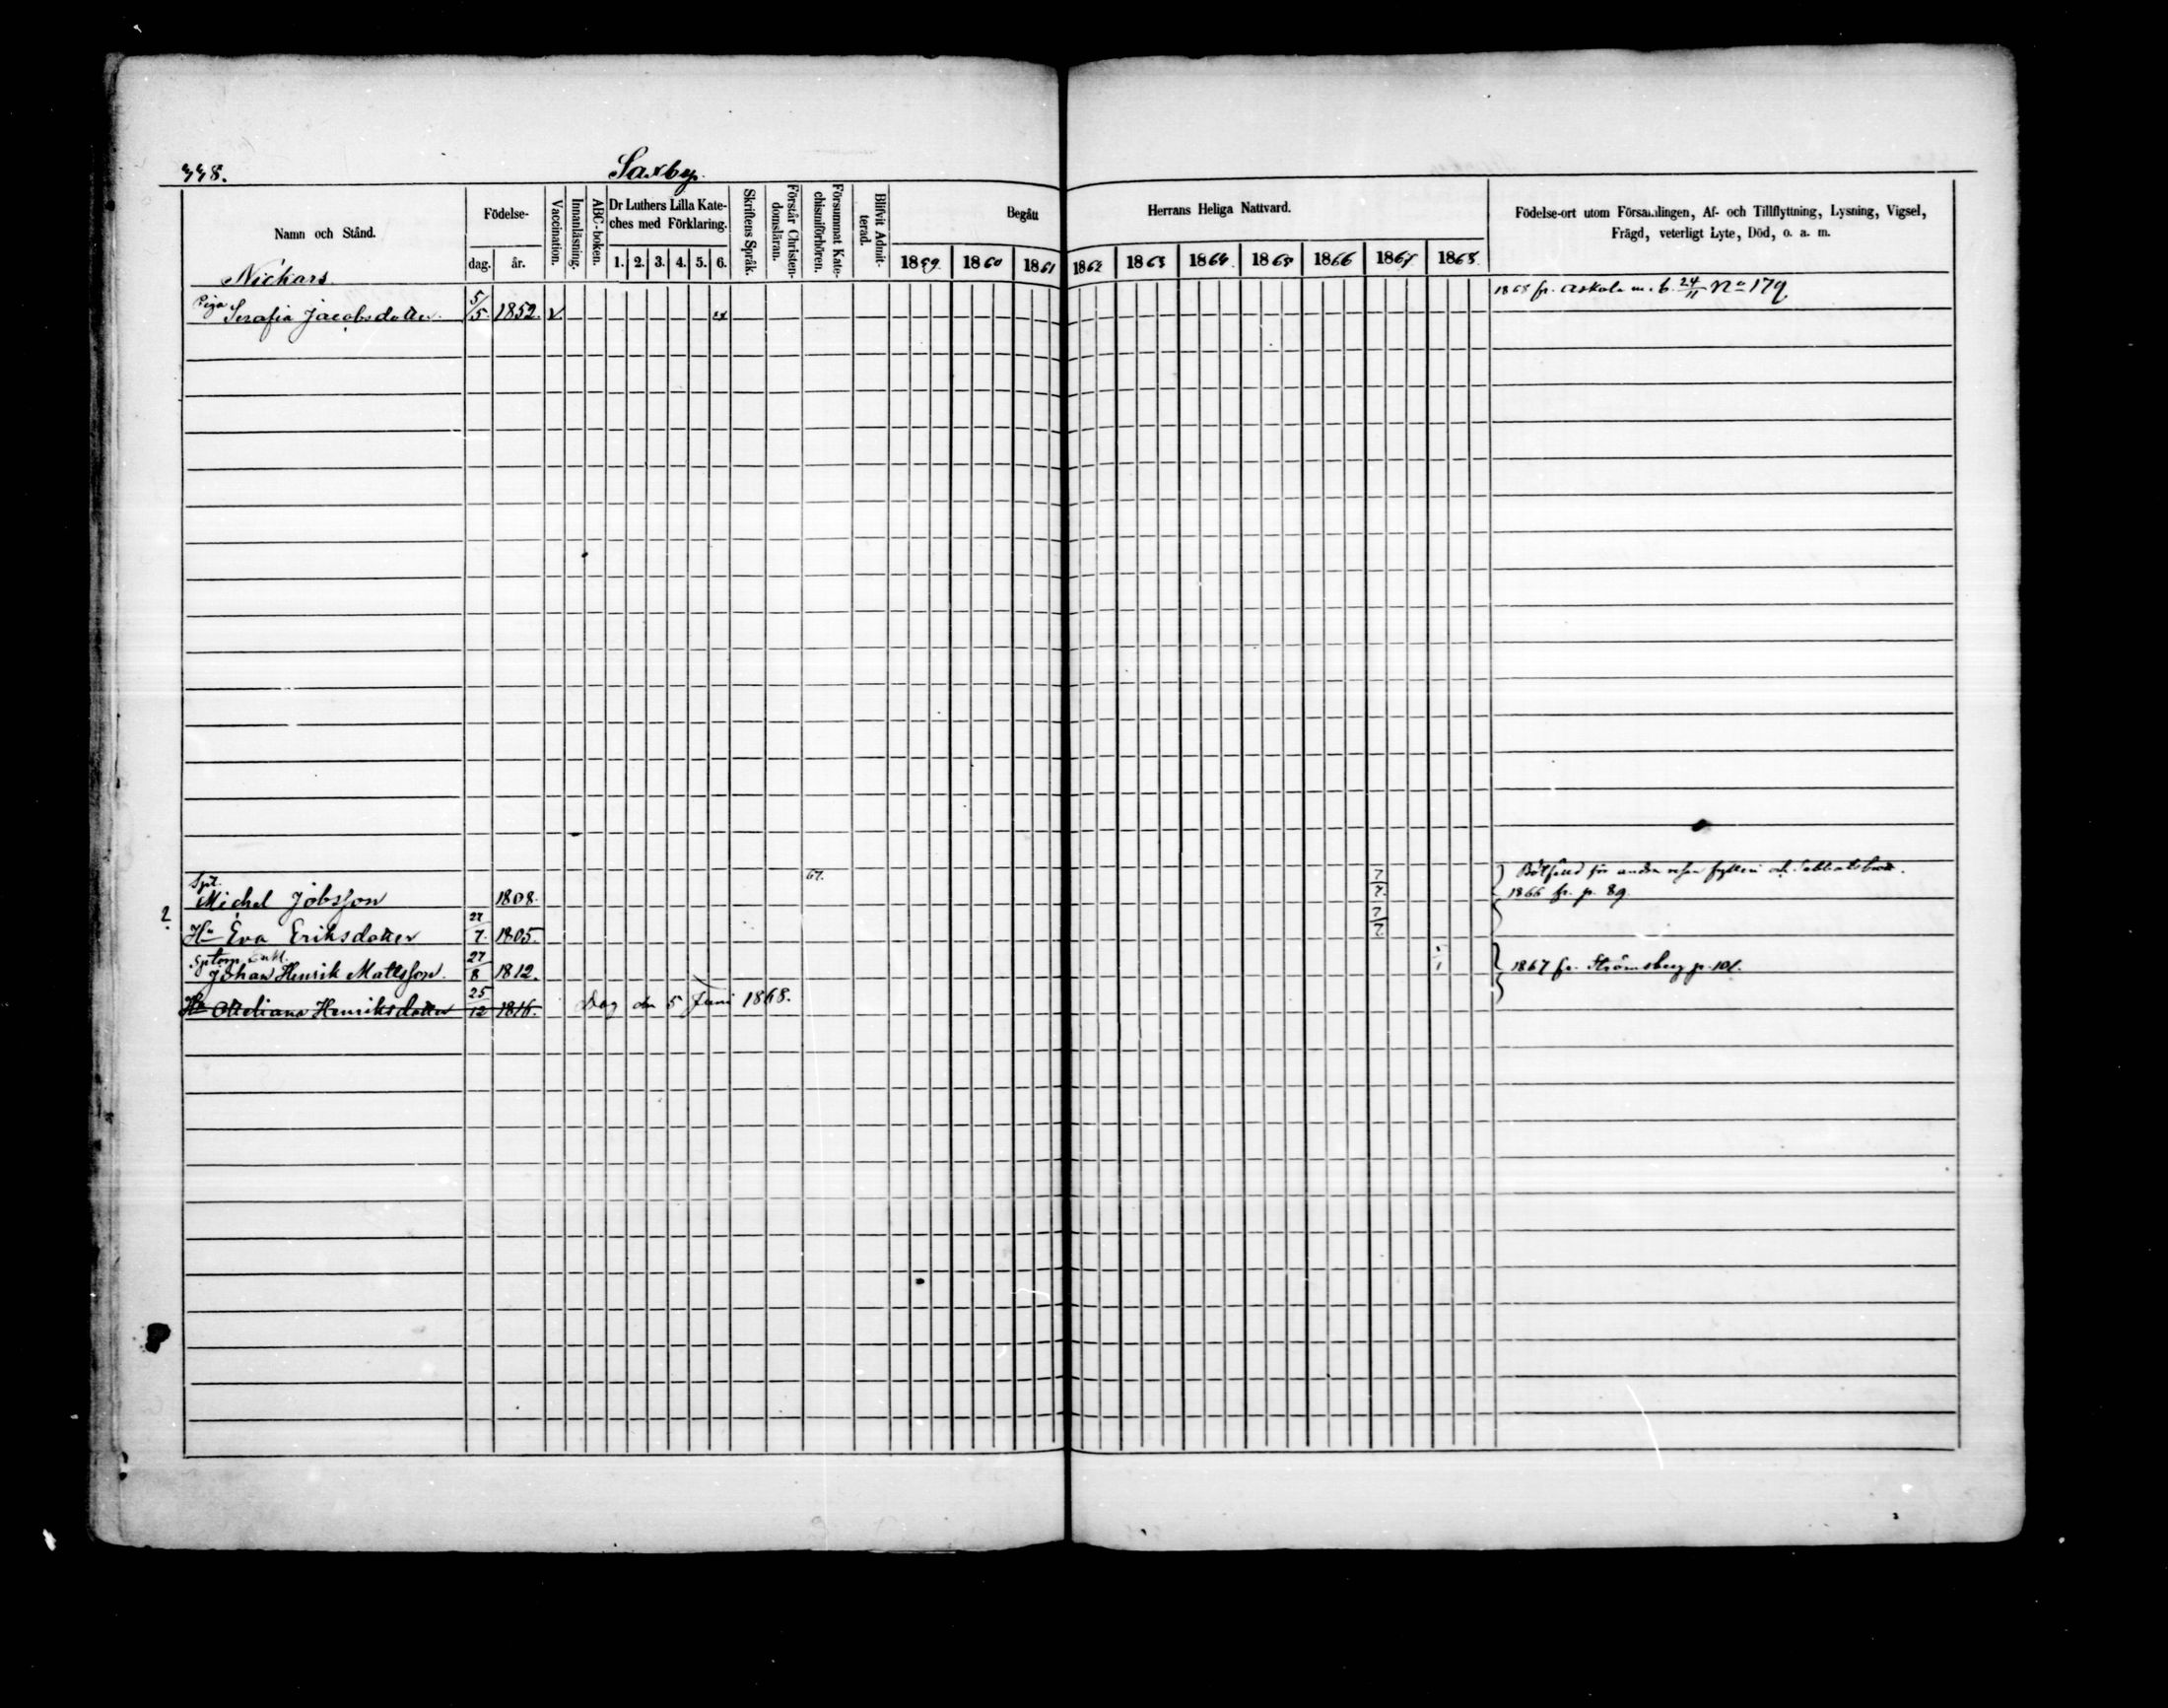 338.
Saxby.
Namn och Stånd.
Födelse-
dag. år.
Vaccination.
Innanläsning.
ABC-boken.
Dr Luthers Lilla Kate-
ches med Förklaring.
1. 2. 3. 4. 5. 6.
Skriftens Språk.
Förstår Christen-
domsläran.
Försummat Kate-
chismiförhören.
Blifvit Admit-
terad.
Begått Herrans Heliga Nattvard.
1859 1860 1861 1862 1863 1864 1865 1866 1867 1868
Födelse-ort utom Församlingen, Af- och Tillflyttning, Lysning, Vigsel,
Frägd, veterligt Lyte, Död, o. a. m.
Nickars.
Piga Serafia Jacobsdotter 5/5 1852. v x 1868 fr. Askola m. b. 24/11 No 179
67. 7/7. Bötfälld för andra resan fylleri och Sabbatsbrott.
Spt. Michel Jobsson 1808. 1866 fr. p. 89.
2. Hu Eva Eriksdotter 27/7. 1805. 7/7.
Sptorp. Enkl.
Johan Henrik Mattsson. 27/8 1812. 1/1 1867 fr. Strömsberg p. 101.
Hu Henriksdotter 25/12 1816. Dog den 5 Juni 1868.